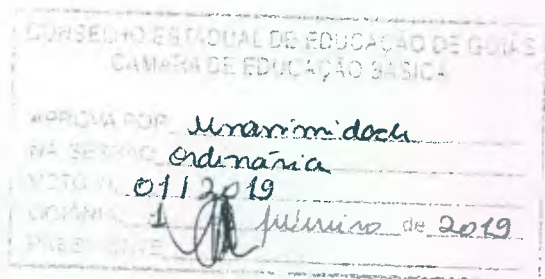 CONSELHO ESTADUAL DE EDUCAÇÃO DE GOIÁS
CÂMARA DE EDUCAÇÃO BÁSICA
APROVA POR Unanimidade
NA SESSÃO Ordinária
VOTO N. 01 / 2019
GOIÂNIA, 1 fevereiro de 2019
PRESIDENTE